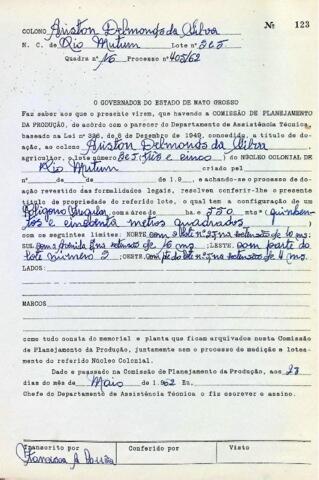 Nº 123
COLONO Ariston Delmondes da Silva
N. C. de Rio Mutum Lote nº 2 e 5
Quadra nº 16 Processo nº 405/62
O GOVERNADOR DO ESTADO DE MATO GROSSO
Faz saber aos que o presente virem, que havendo a COMISSÃO DE PLANEJAMENTO
DA PRODUÇÃO, de acôrdo com o parecer do Departamento de Assistência Técnica,
baseado na Lei nº 336, de 6 de Dezembro de 1949, concedido, a título de doa-
ção, ao colono Ariston Delmondes da Silva
agricultor, o lote número 2 e 5 e cinco) do NÚCLEO COLONIAL DE
Rio Mutum criado pel
nº de de de 1.9 e achando-se o processo de doa-
ção revestido das formalidades legais, resolvem conferir-lhe o presente
título de propriedade do referido lote, o qual tem a configuração de um
Polígono Irregular com a área de ha. e 550 mts² (quinhen-
tos e cincoenta metros quadrados)
com os seguintes limites: NORTE, com o lote nº na extensão de 10 ms;
SUL com a na extensão de 10 ms; LESTE, com parte do
lote número 2; OESTE, com parte do lote nº na extensão de ms.
LADOS:
MARCOS
como tudo consta do memorial e planta que ficam arquivados nesta Comissão
de Planejamento da Produção, juntamente com o processo de medição e lotea-
mento do referido Núcleo Colonial.
Dado e passado na Comissão de Planejamento da Produção, aos 23
dias do mês de Maio de 1.962 Eu.
Chefe do Departamento de Assistência Técnica o fiz escrever e assino.
Transcrito por Conferido por Visto
Francisca